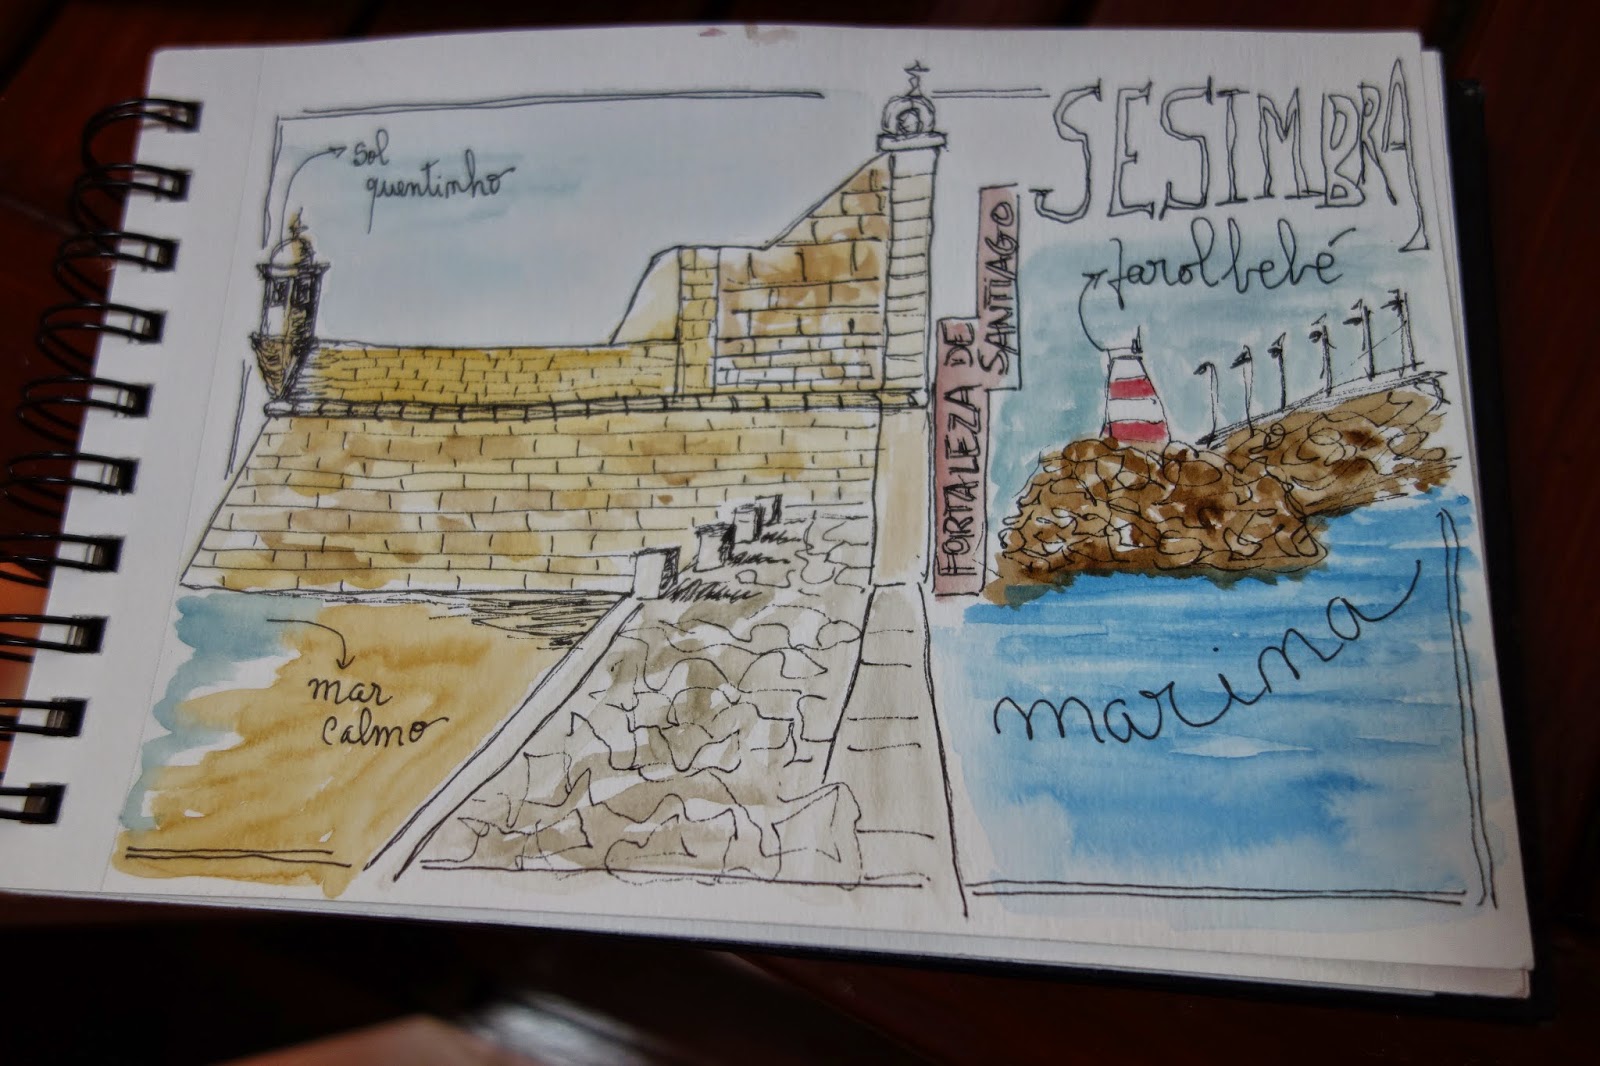 SESIMBRA
sol
quentinho
farol bebé
FORTALEZA DE
SANTIAGO
mar
calmo
marina